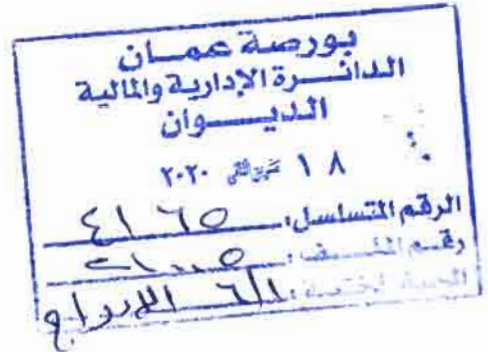 بورصة عمان
الدائرة الإدارية والمالية
الديوان
١٨ ٢٠٢٠
الرقم المتسلسل: ٤١٦٥
رقم الملف:
الجهة المختصة: الإدراج